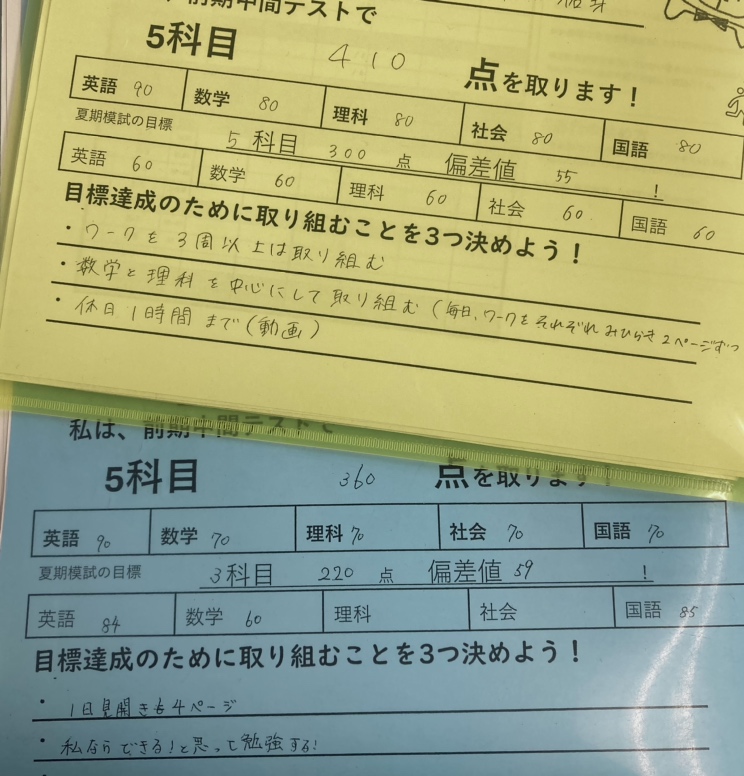 前期中間テストで
5科目 410 点を取ります！
英語 90 数学 80 理科 80 社会 80 国語 80
夏期模試の目標 5科目 300 点 偏差値 55 ！
英語 60 数学 60 理科 60 社会 60 国語 60
目標達成のために取り組むことを3つ決めよう！
・ワークを3周以上は取り組む
・数学と理科を中心にして取り組む（毎日、ワークをそれぞれみひらき2ページずつ
・休日1時間まで（動画）
私は、前期中間テストで
5科目 360 点を取ります！
英語 90 数学 70 理科 70 社会 70 国語 70
夏期模試の目標 3科目 220 点 偏差値 59 ！
英語 84 数学 60 理科 社会 国語 85
目標達成のために取り組むことを3つ決めよう！
・1日見開きを4ページ
・私ならできる！と思って勉強する！